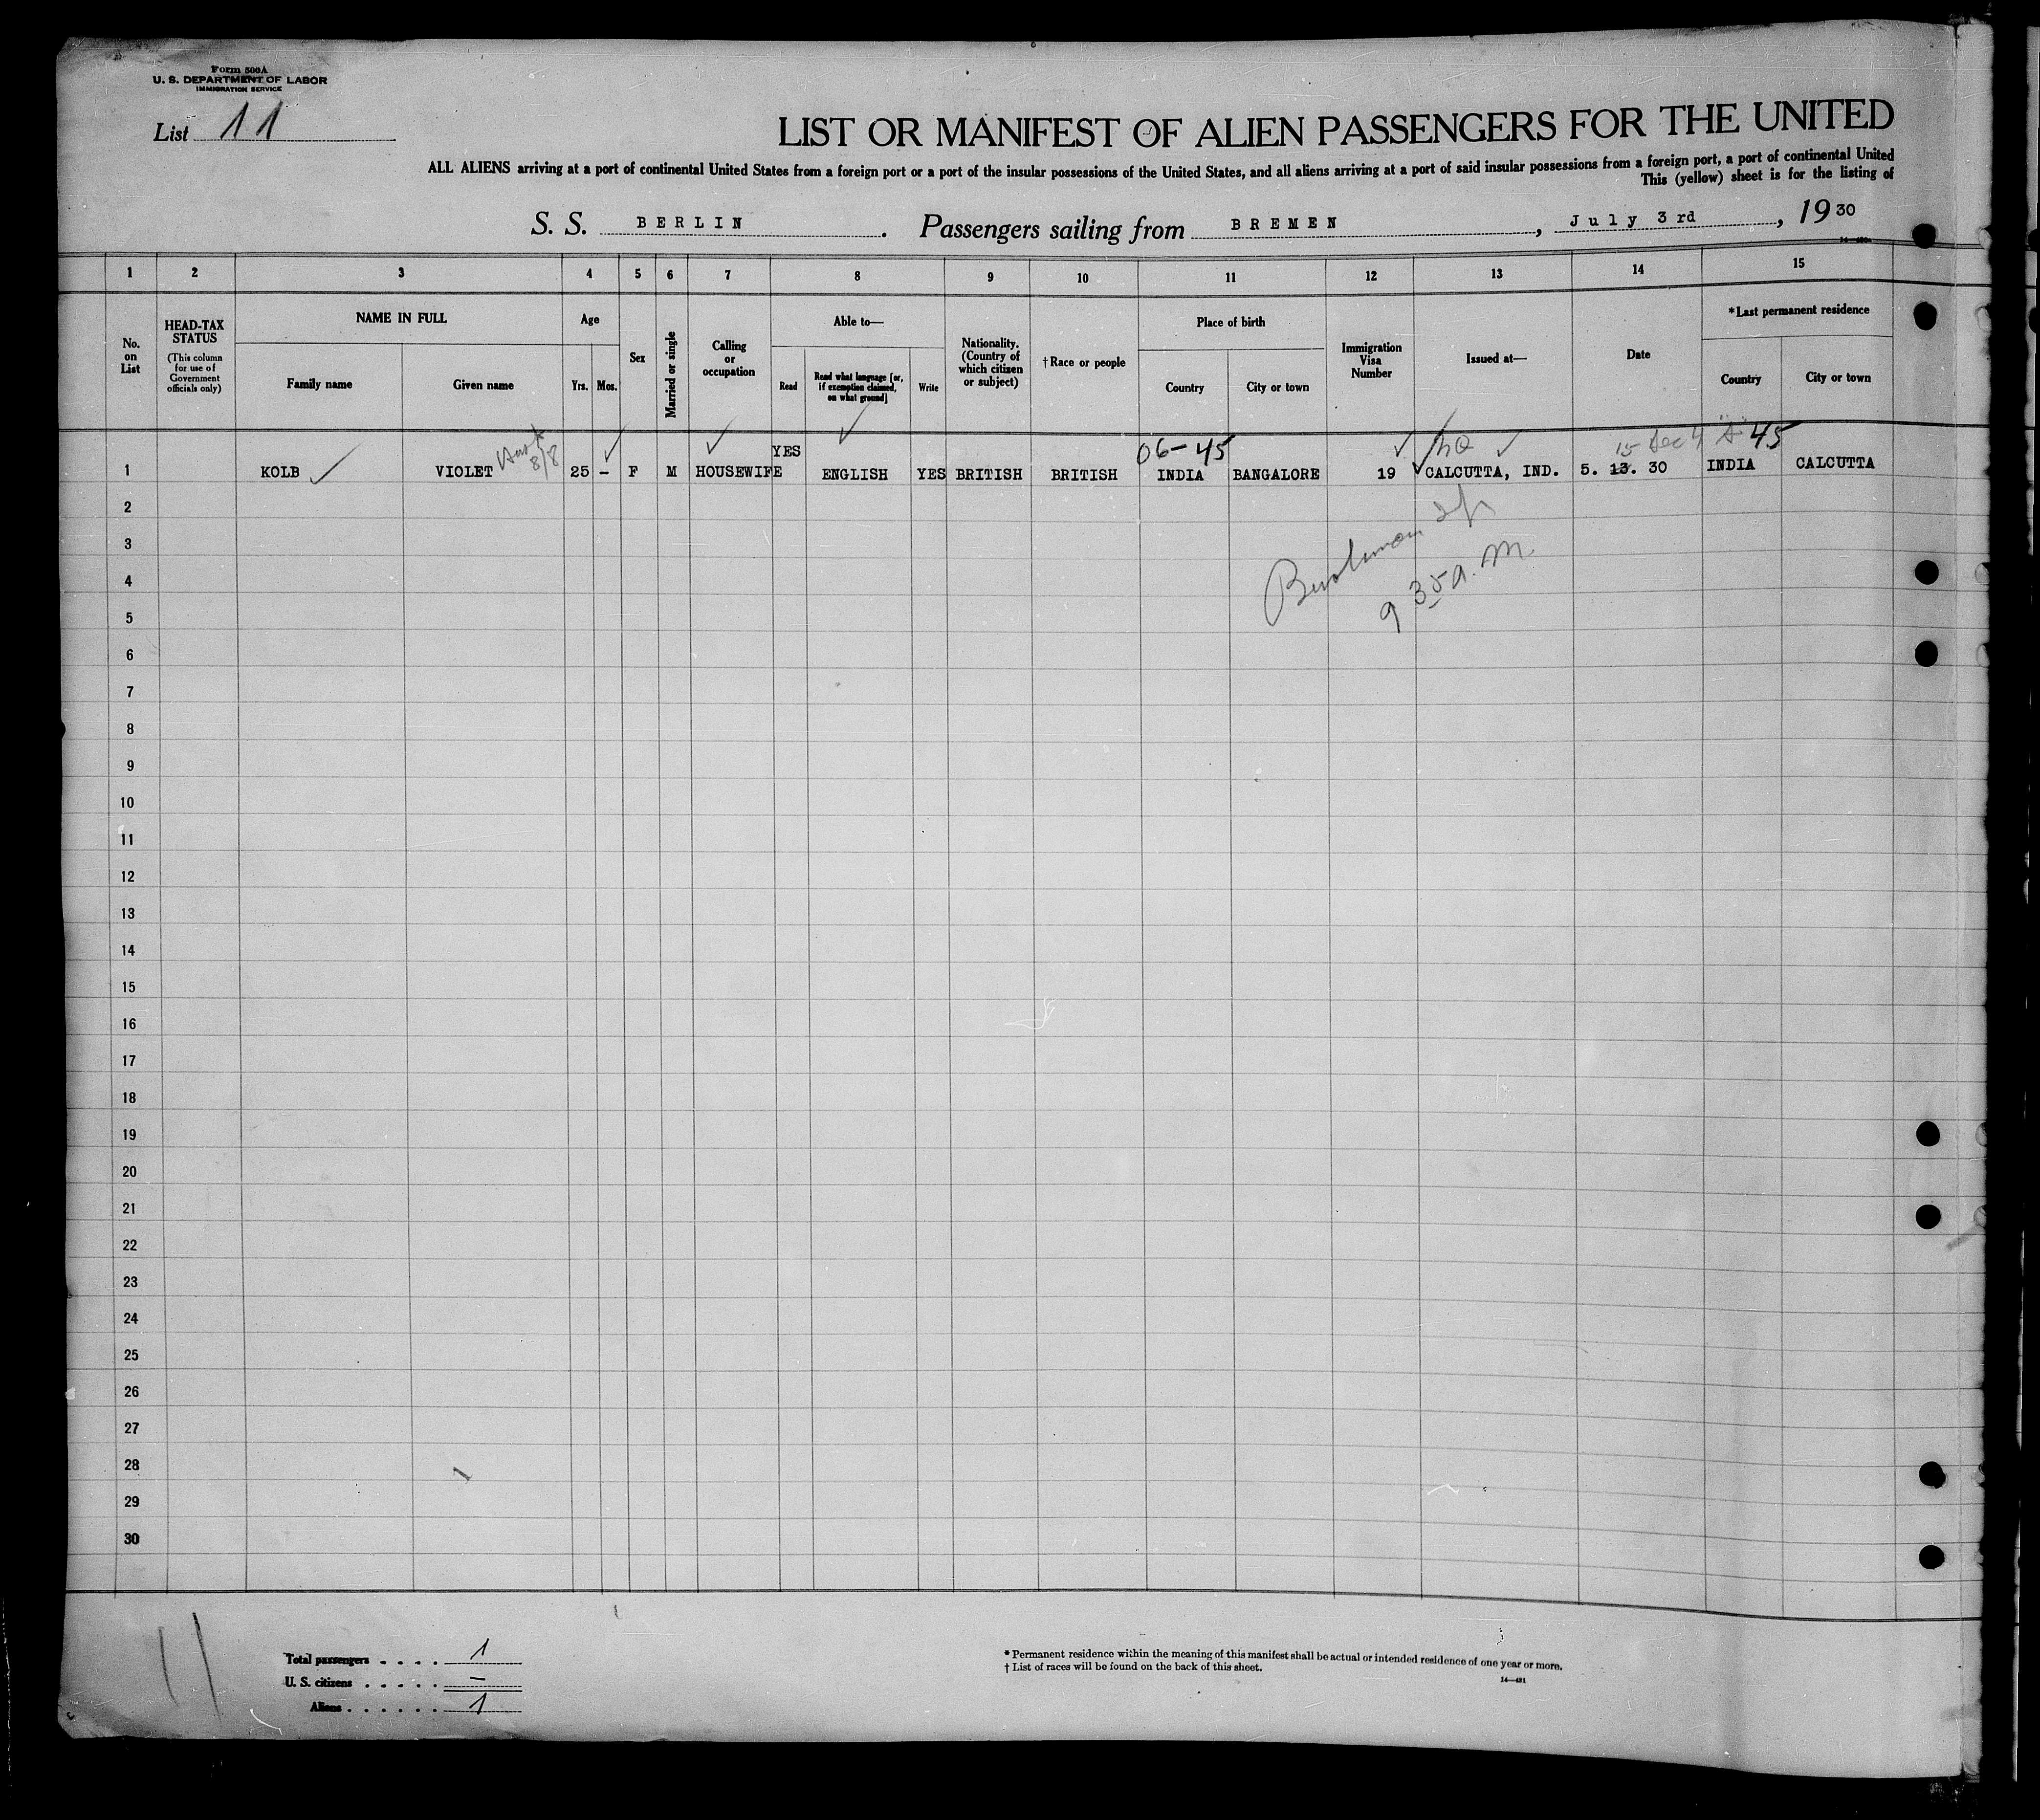 Form 500A
U. S. DEPARTMENT OF LABOR
IMMIGRATION SERVICE
List 11
LIST OR MANIFEST OF ALIEN PASSENGERS FOR THE UNITED
ALL ALIENS arriving at a port of continental United States from a foreign port or a port of the insular possessions of the United States, and all aliens arriving at a port of said insular possessions from a foreign port, a port of continental United
This (yellow) sheet is for the listing of
S. S. BERLIN. Passengers sailing from BREMEN, July 3rd, 1930
1 2 3 4 5 6 7 8 9 10 11 12 13 14 15
No. on List
HEAD-TAX STATUS (This column for use of Government officials only)
NAME IN FULL
Family name Given name
Age
Yrs. Mos.
Sex
Married or single
Calling or occupation
Able to—
Read
Read what language [or, if exemption claimed, on what ground]
Write
Nationality. (Country of which citizen or subject)
†Race or people
Place of birth
Country City or town
Immigration Visa Number
Issued at—
Date
*Last permanent residence
Country City or town
06-45 15 Dec 4 45
1 KOLB VIOLET 8/8 25 - F M HOUSEWIFE YES ENGLISH YES BRITISH BRITISH INDIA BANGALORE 19 CALCUTTA, IND. 5. 13. 30 INDIA CALCUTTA
2
3
9 35 a. M.
4
5
6
7
8
9
10
11
12
13
14
15
16
17
18
19
20
21
22
23
24
25
26
27
28
29
30
11
Total passengers . . . . 1
U. S. citizens . . . . . —
Aliens . . . . . . 1
* Permanent residence within the meaning of this manifest shall be actual or intended residence of one year or more.
† List of races will be found on the back of this sheet.
14—431